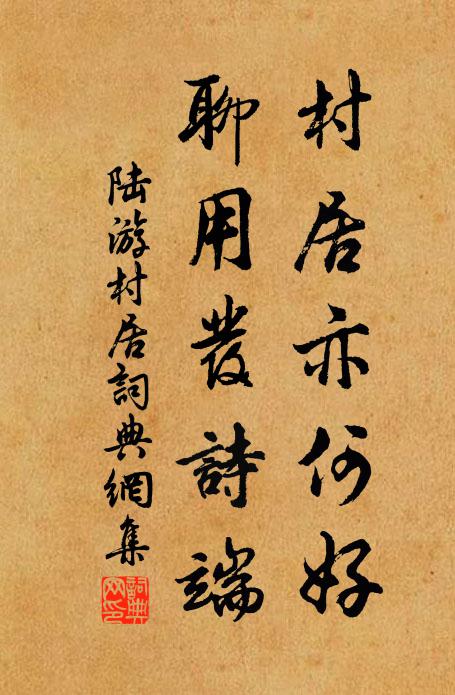 村居亦何好
聊用發詩端
陆游村居詞典網集
詞典
网印